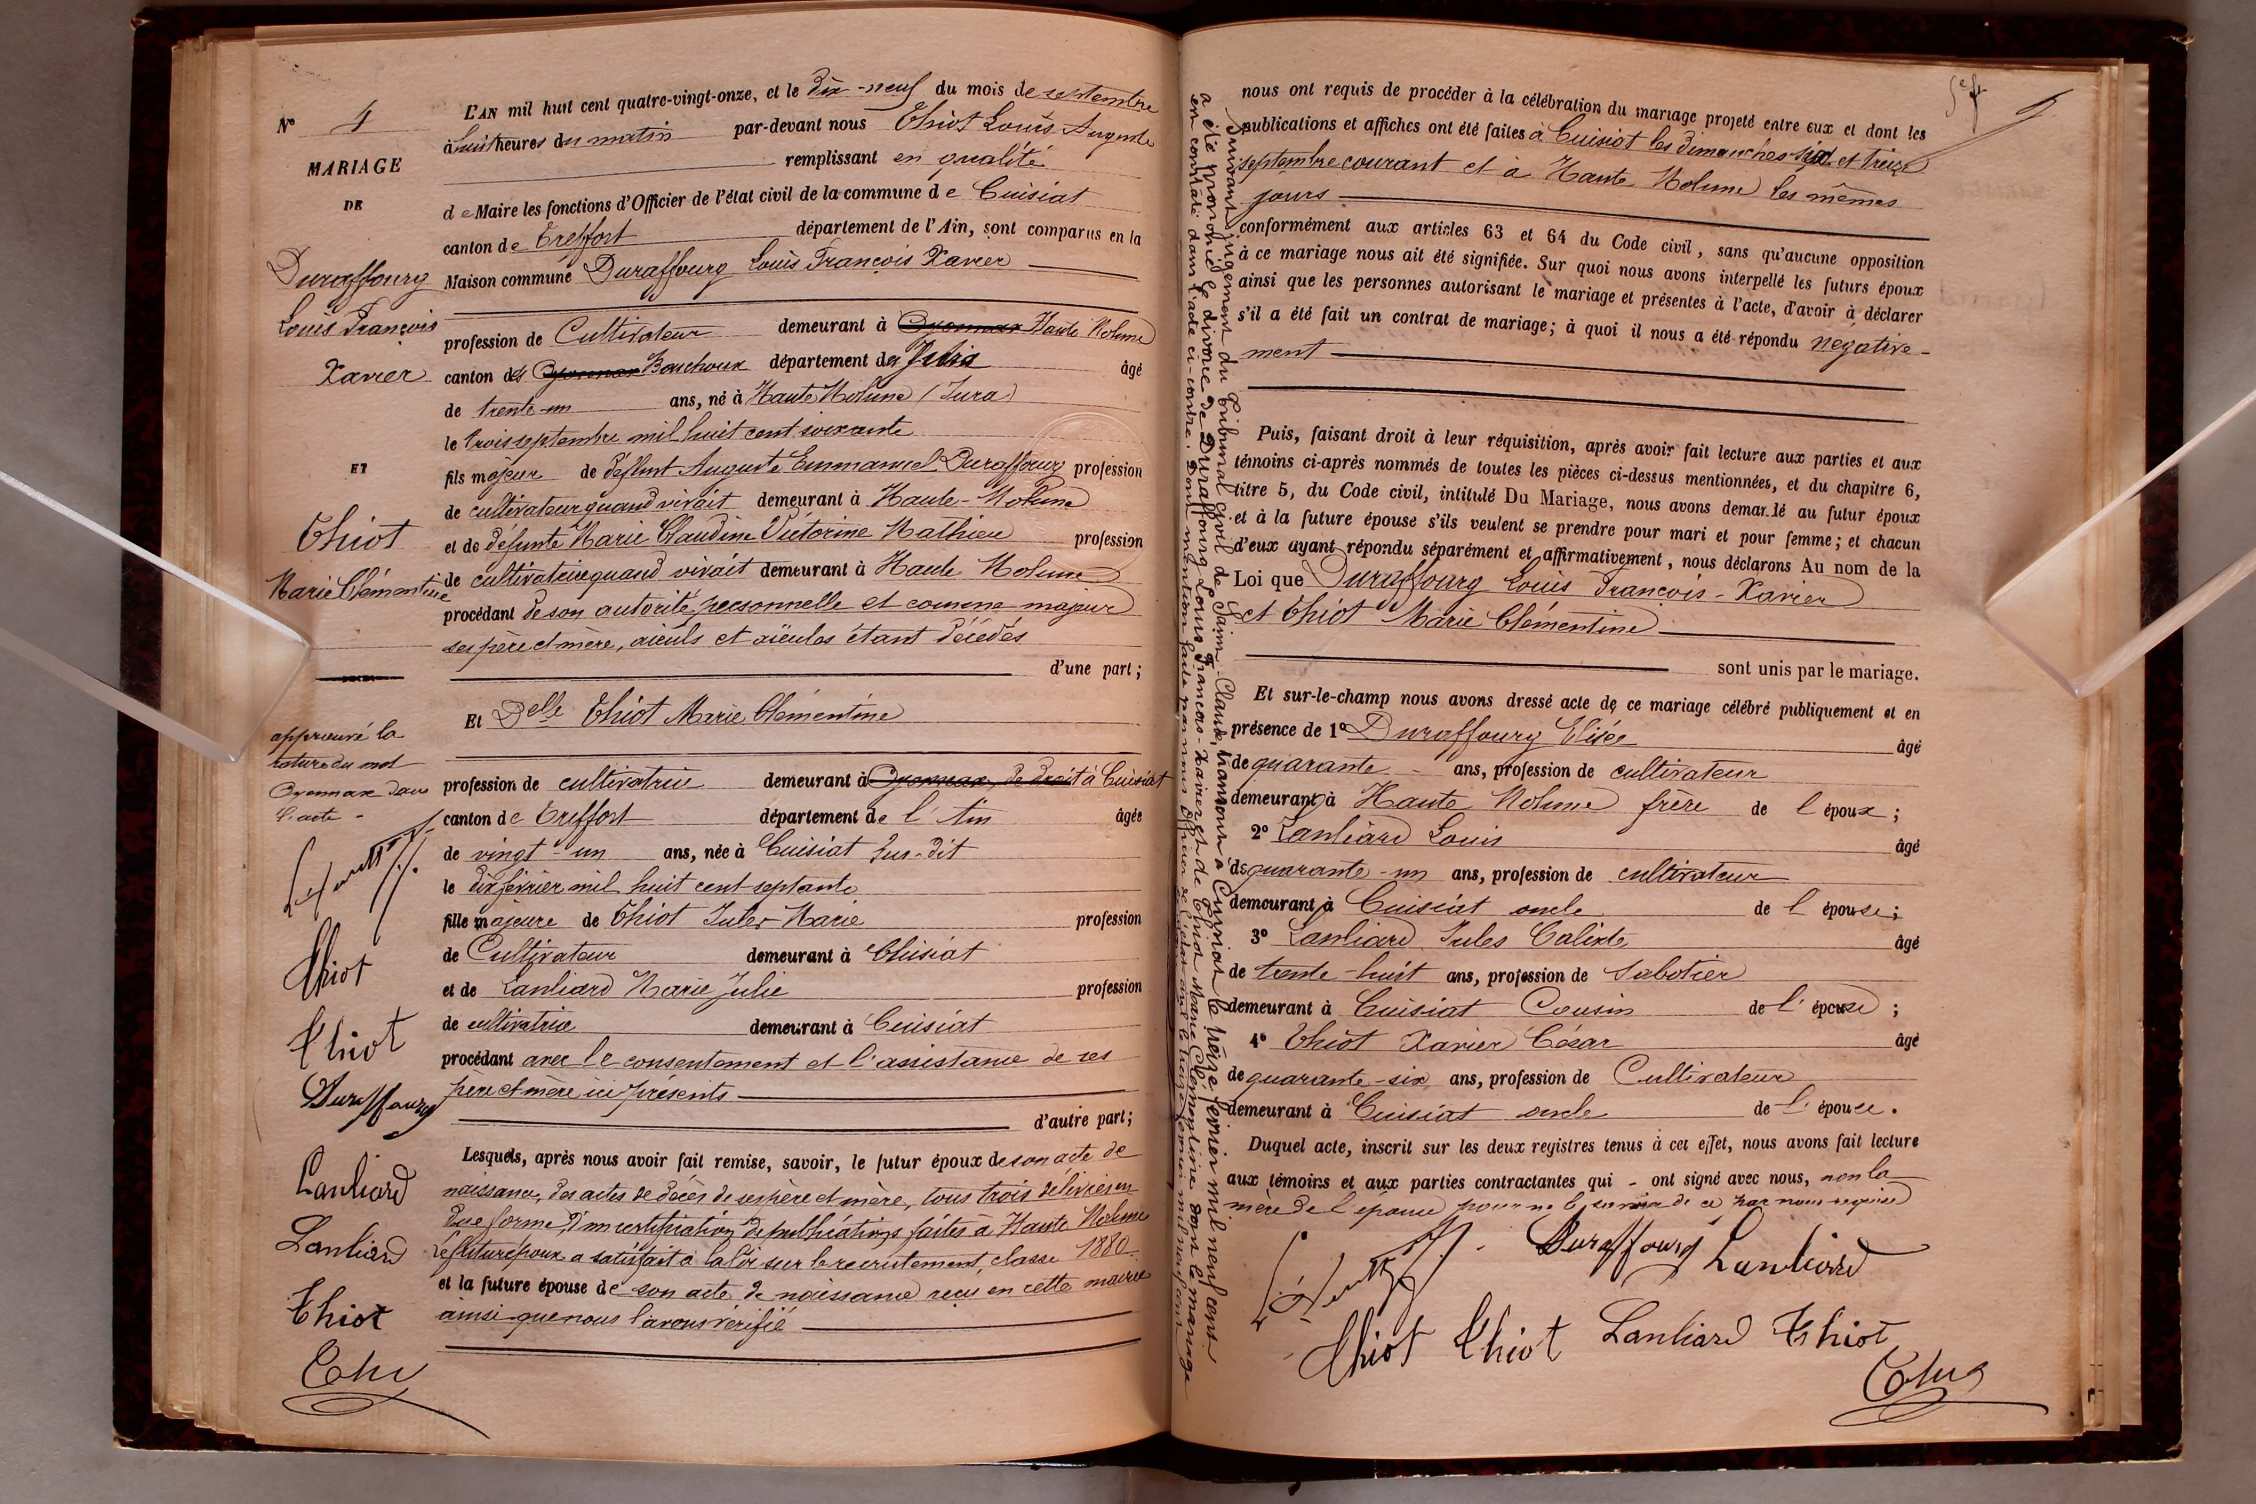 N° 4
MARIAGE
DE
Duraffourg
Louis François
Xavier
ET
Thiot
Marie Clémentine
approuvé la
rature du mot
Oyonnax dans
l'acte -
Thiot
Thiot
Duraffourg
Lanliard
Lanliard
Thiot
L'AN mil huit cent quatre-vingt-onze, et le dix-neuf du mois de septembre
à huit heures du matin par-devant nous Thiot Louis Auguste
remplissant en qualité
de Maire les fonctions d'Officier de l'état civil de la commune de Cuisiat
canton de Treffort département de l'Ain, sont comparus en la
Maison commune Duraffourg Louis François Xavier
profession de Cultivateur demeurant à Oyonnax Haute Molune
canton des Oyonnax Bouchoux département du Jura âgé
de trente-un ans, né à Haute Molune (Jura)
le trois septembre mil huit cent soixante
fils majeur de défunt Auguste Emmanuel Duraffourg profession
de cultivateur quand vivait demeurant à Haute-Molune
et de défunte Marie Claudine Victorine Mathieu profession
de cultivatrice quand vivait demeurant à Haute Molune
procédant de son autorité personnelle et comme majeur
ses père et mère, aïeuls et aïeules étant décédés
d'une part;
Et Delle Thiot Marie Clémentine
profession de cultivatrice demeurant à Oyonnax, de droit à Cuisiat
canton de Treffort département de l'Ain âgée
de vingt-un ans, née à Cuisiat sus-dit
le dix février mil huit cent septante
fille majeure de Thiot Jules-Marie profession
de Cultivateur demeurant à Cuisiat
et de Lanliard Marie Julie profession
de cultivatrice demeurant à Cuisiat
procédant avec le consentement et l'assistance de ses
père et mère ici présents
d'autre part;
Lesquels, après nous avoir fait remise, savoir, le futur époux de son acte de
naissance, des actes de décès de ses père et mère, tous trois délivrés en
due forme, d'un certificat de publications faites à Haute Molune
Le futur époux a satisfait à la loi sur le recrutement, classe 1880.
et la future épouse de son acte de naissance reçu en cette mairie
ainsi que nous l'avons vérifié
Suivant jugement du Tribunal civil de Saint-Claude, transcrit à Cuisiat le treize février mil neuf cent
a été prononcé le divorce de Duraffourg Louis François-Xavier et de Thiot Marie Clémentine dont le mariage
est constaté dans l'acte ci-contre. Dont mention faite par nous officier de l'état civil le treize février mil neuf cent
nous ont requis de procéder à la célébration du mariage projeté entre eux et dont les
publications et affiches ont été faites à Cuisiat les dimanches six et treize
septembre courant et à Haute Molune les mêmes
jours
conformément aux articles 63 et 64 du Code civil, sans qu'aucune opposition
à ce mariage nous ait été signifiée. Sur quoi nous avons interpellé les futurs époux
ainsi que les personnes autorisant le mariage et présentes à l'acte, d'avoir à déclarer
s'il a été fait un contrat de mariage; à quoi il nous a été répondu négative-
ment
Puis, faisant droit à leur réquisition, après avoir fait lecture aux parties et aux
témoins ci-après nommés de toutes les pièces ci-dessus mentionnées, et du chapitre 6,
titre 5, du Code civil, intitulé Du Mariage, nous avons demandé au futur époux
et à la future épouse s'ils veulent se prendre pour mari et pour femme; et chacun
d'eux ayant répondu séparément et affirmativement, nous déclarons Au nom de la
Loi que Duraffourg Louis François-Xavier
et Thiot Marie Clémentine
sont unis par le mariage.
Et sur-le-champ nous avons dressé acte de ce mariage célébré publiquement et en
présence de 1° Duraffourg Elisée âgé
de quarante ans, profession de cultivateur
demeurant à Haute Molune frère de l'époux;
2° Lanliard Louis âgé
de quarante-un ans, profession de cultivateur
demeurant à Cuisiat oncle de l'épouse;
3° Lanliard Jules Calixte âgé
de trente-huit ans, profession de sabotier
demeurant à Cuisiat Cousin de l'épouse;
4° Thiot Xavier César âgé
de quarante-six ans, profession de Cultivateur
demeurant à Cuisiat oncle de l'épouse.
Duquel acte, inscrit sur les deux registres tenus à cet effet, nous avons fait lecture
aux témoins et aux parties contractantes qui - ont signé avec nous, non la
mère de l'épouse pour ne le savoir de ce par nous requise
Duraffourg Lanliard
Thiot Thiot Lanliard Thiot